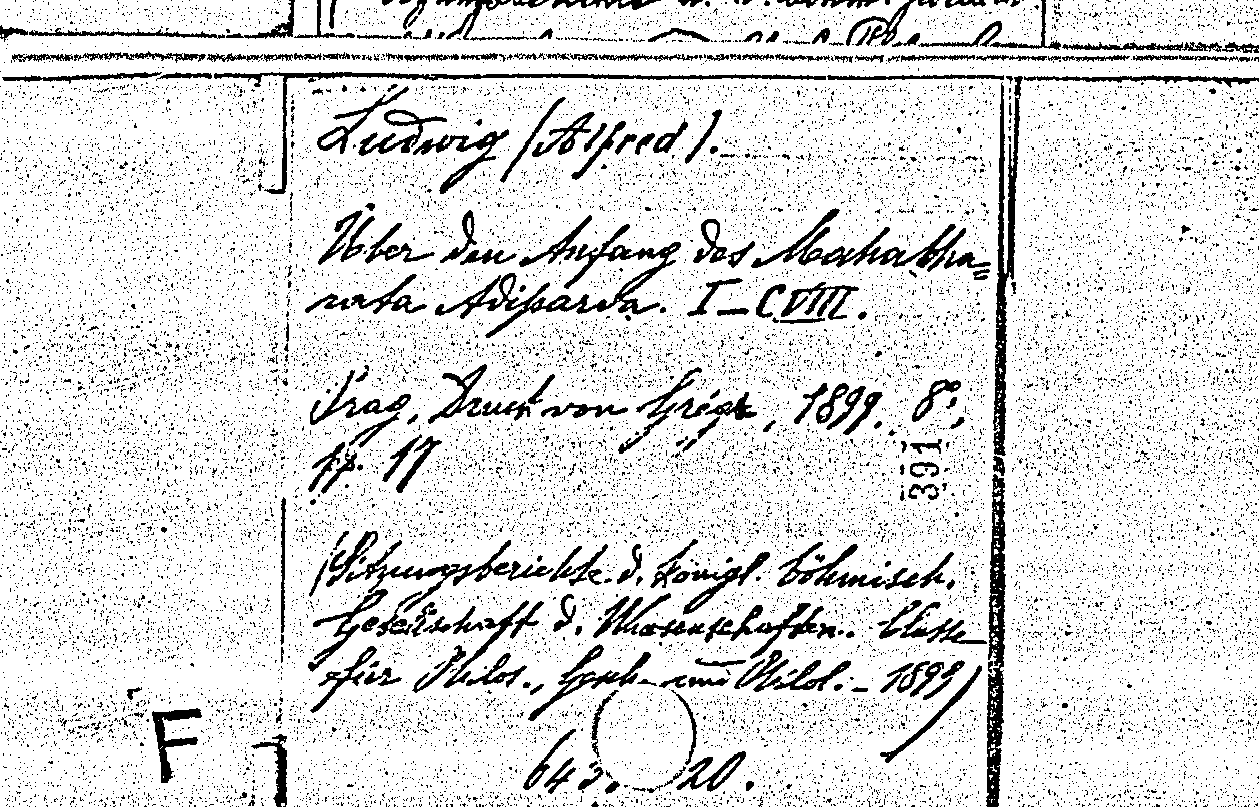 Ludwig (Alfred).
Über den Anfang des Mahabha=
rata Adiparva. I–CVIII.
Prag, Druck von Grégr, 1899. 8°,
pp. 17
391
(Sitzungsberichte d. königl. böhmisch.
Gesellschaft d. Wissenschaften. Classe
für Philos., Gesch. und Philol. – 1899)
F
643. 20.